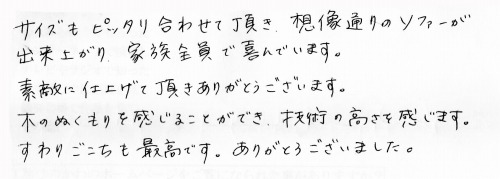 サイズも ピッタリ合わせて頂き、想像通りのソファーが
出来上がり、家族全員で喜んでいます。
素敵に仕上げて頂きありがとうございます。
木のぬくもりを感じることができ、技術の高さを感じます。
すわりごこちも最高です。ありがとうございました。